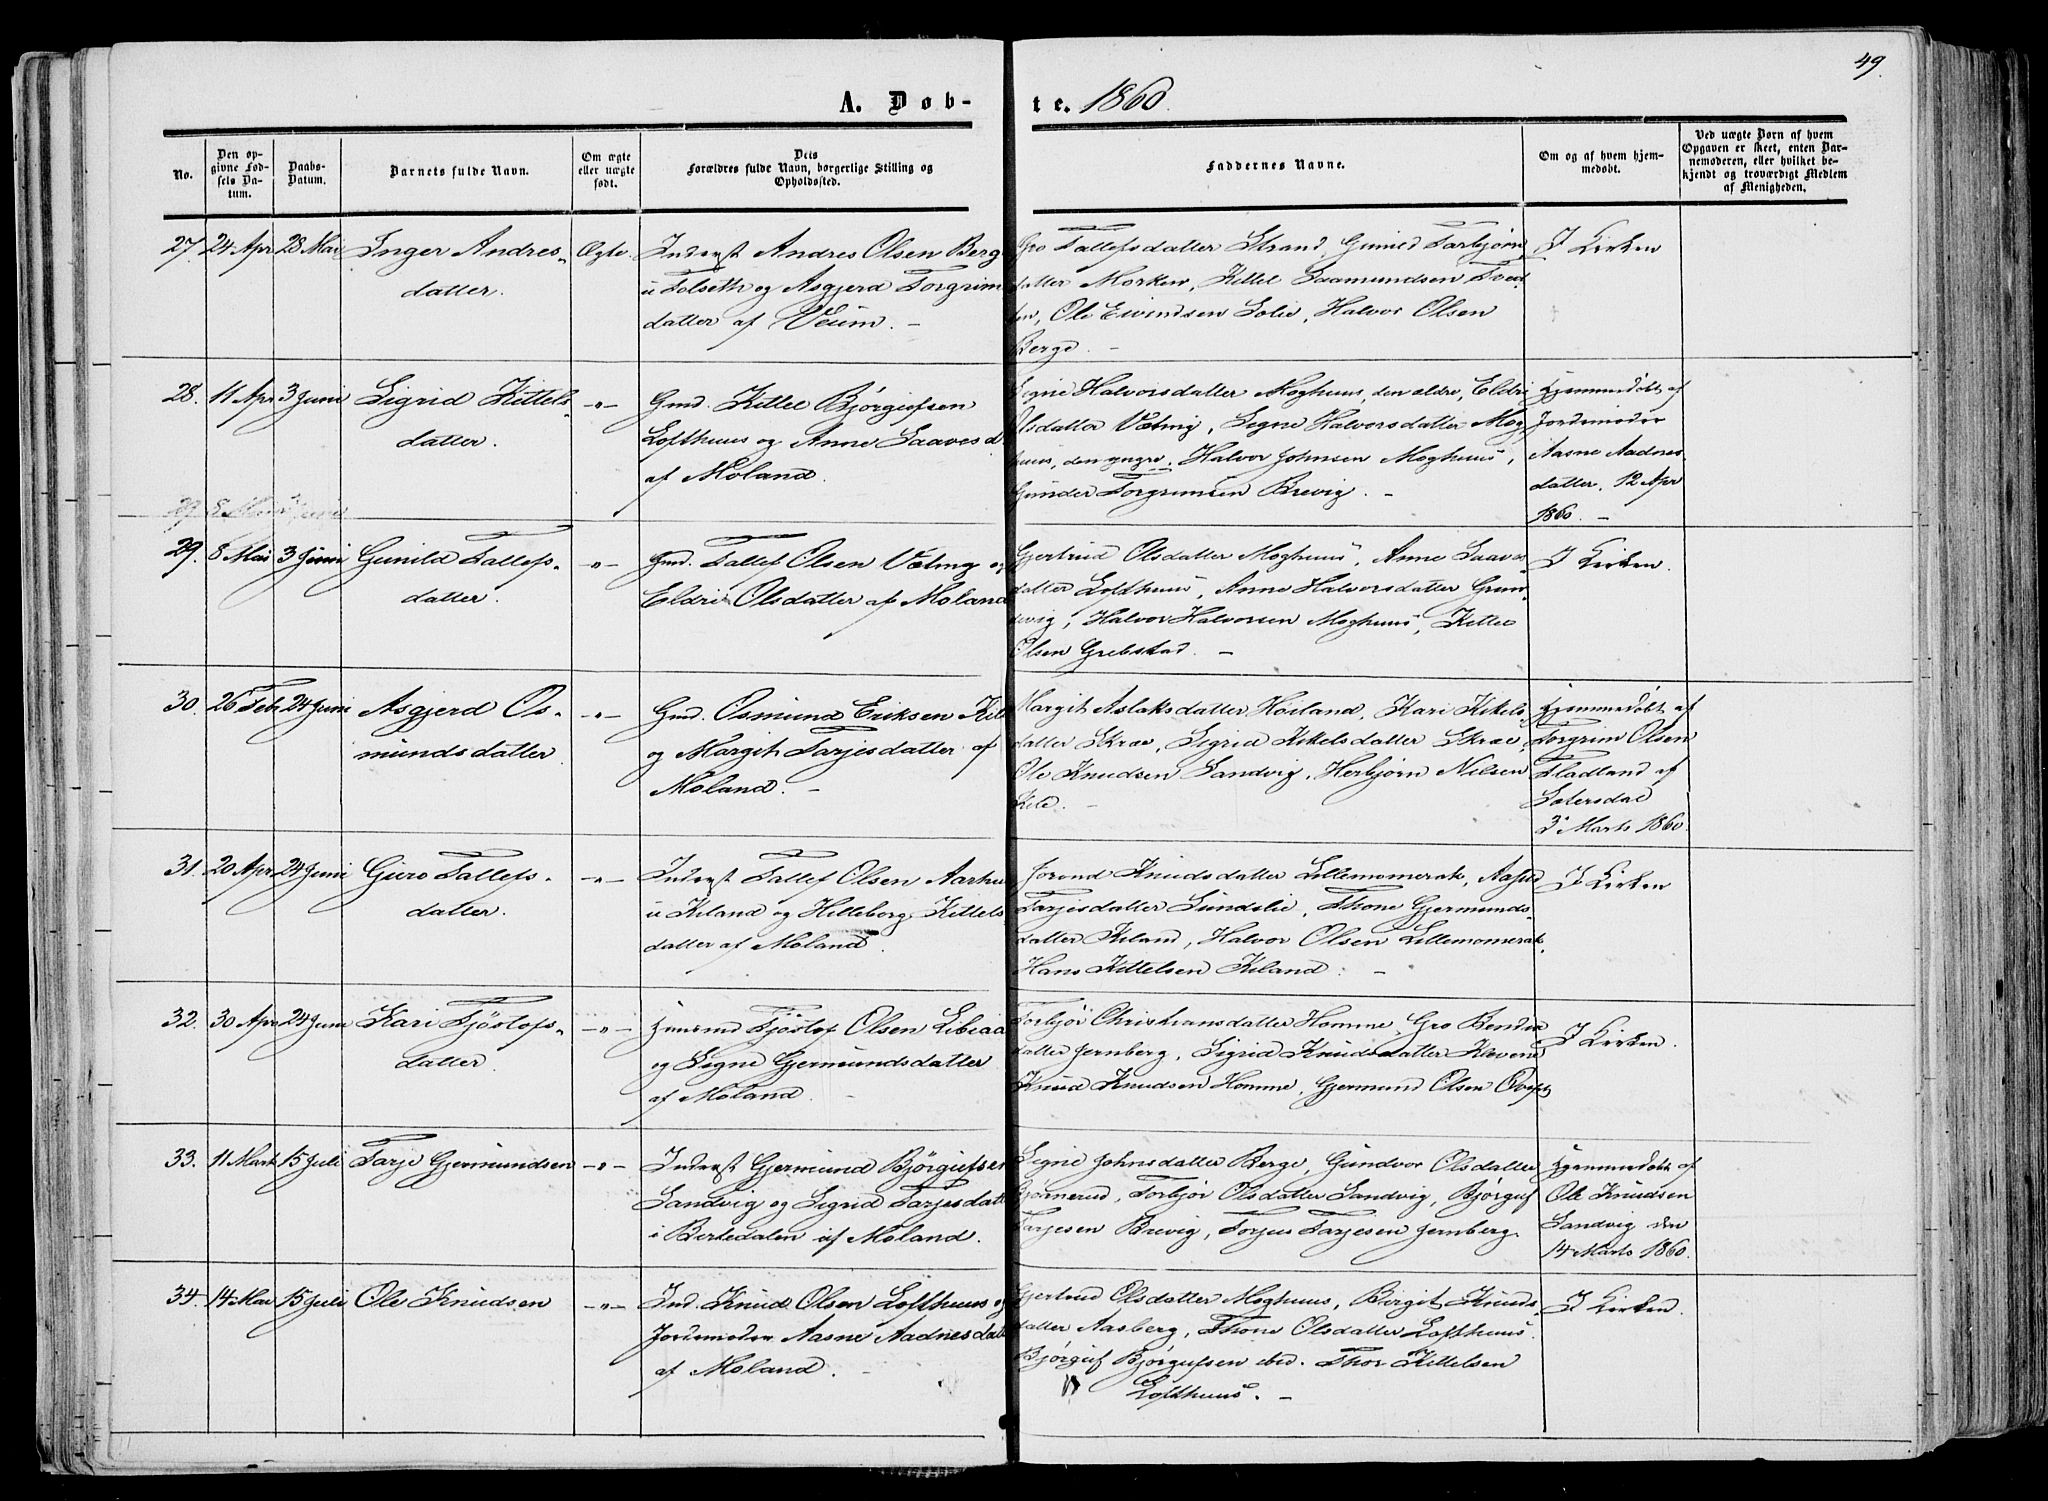 49.
A. Døb-
te. 1860.
No.
Den opgivne Fødsels Datum.
Daabs-Datum.
Barnets fulde Navn.
Om ægte eller uægte født.
Dets Forældres fulde Navn, borgerlige Stilling og Opholdssted.
Faddernes Navne.
Om og af hvem hjemmedøbt.
Ved uægte Børn af hvem Opgaven er skeet, enten Barnemoderen, eller hvilket bekjendt og troværdigt Medlem af Menigheden.
27. 24 Apr 28 Mai Inger Andres- Ægte. Inderst Andres Olsen Berg
datter. u Folseth og Asgjerd Torgrim
datter af Veum. -
Gro Tallefsdatter Strand, Guned Tarbjørn
datter Morken, Kittel Saamundsen Tved-
ten, Ole Eivindsen Solie, Halvor Olsen
Berge. -
I Kirken
28. 11 Apr 3 Juni Sigrid Kittels- -"- Gmd. Kittel Bjørgufsen
datter. Lofthuus og Anne Saavesd
af Moland.
Signe Halvorsdatter Moghuus, den eldre, Eldri
Olsdatter Vætvig, Signe Halvorsdatter Mog-
huus, den yngre, Halvor Johnsen Moghuus,
Gunder Torgrimsen Brevig. -
Hjemmedøbt af
Jordemoder
Aasne Aadnes
datter, 12 Apr
1860. -
29. 8 Mai 3 Juni Gunild Tallefs- -"- Gmd. Tallef Olsen Vætvig og
datter. Eldri Olsdatter af Moland
Gjertrud Olsdatter Moghuus, Anne Saaves-
datter Lofthuus, Anne Halvorsdatter Grun-
devig, Halvor Halvorsen Moghuus, Kittel
Olsen Grebstad. -
I Kirken.
30. 26 Feb 24 Juni Asgjerd Os- -"- Gmd. Osmund Eriksen Kile
munds datter. og Margit Tarjesdatter af
Moland. -
Margit Aslaksdatter Høiland, Kari Kikels-
datter Skræ, Sigrid Kikelsdatter Skræ,
Ole Knudsen Sandvig, Herbjørn Nilsen
Kile. -
Hjemmedøbt af
Torgrim Olsen
Fladland af
Sætersdal
3 Marts 1860.
31. 20 Apr 24 Juni Guro Tallefs- -"- Inderst Tallef Olsen Aarhu
datter. u Kiland og Hilleborg Kittels
datter af Moland.
Jorond Knudsdatter Lillemomerak, Aasild
Tarjesdatter Sundslie, Thone Gjermunds-
datter Kiland, Halvor Olsen Lillemomerak.
Hans Kittelsen Kiland. -
I Kirken
32. 30 Apr 24 Juni Kari Tjøstofs- -"- Huusmd Tjøstof Olsen Libiaa
datter. og Signe Gjermundsdatter
af Moland.
Torbjør Christiansdatter Homme, Gro Bendix
datter Jernberg, Sigrid Knudsdatter Klevene
Knud Knudsen Homme, Gjermund Olsen Ovest
I Kirken.
33. 11 Marts 15 Juli Tarje Gjermundsen -"- Inderst Gjermund Bjørgufsen
Sandvig og Sigrid Tarjesdatt
i Bertedalen af Moland.
Signe Johnsdatter Berge, Gundvor Olsdatter
Bjørnerud, Torbjør Olsdatter Sandvig, Bjørguf
Tarjesen Brevig, Torjus Tarjesen Jernberg
Hjemmedøbt af
Ole Knudsen
Sandvig den
14 Marts 1860.
34. 14 Mai 15 Juli Ole Knudsen -"- Ind. Knud Olsen Lofthuus og
Jordemoder Aasne Aadnesdatt
af Moland. -
Gjertrud Olsdatter Moghuus, Birgit Knuds-
datter Aasberg, Thone Olsdatter Lofthuus.
Bjørguf Bjørgufsen ibid. Thor Kittelsen
Lofthuus. -
I Kirken.